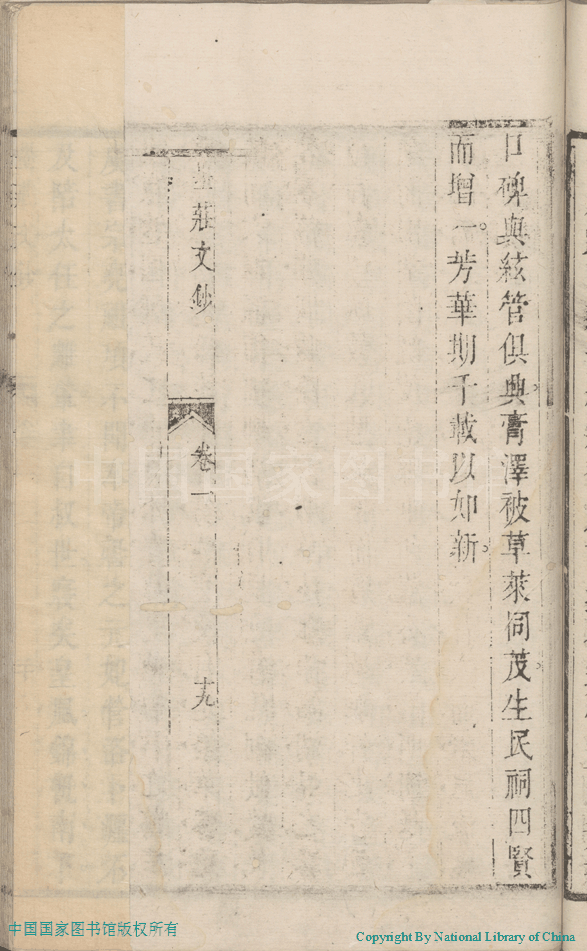 口碑與絃管俱典膏澤被草萊同茂生民祠四賢
而增一芳華期千載以如新
莊文鈔
卷一
十九
中国国家图书馆版权所有
Copyright By National Library of China